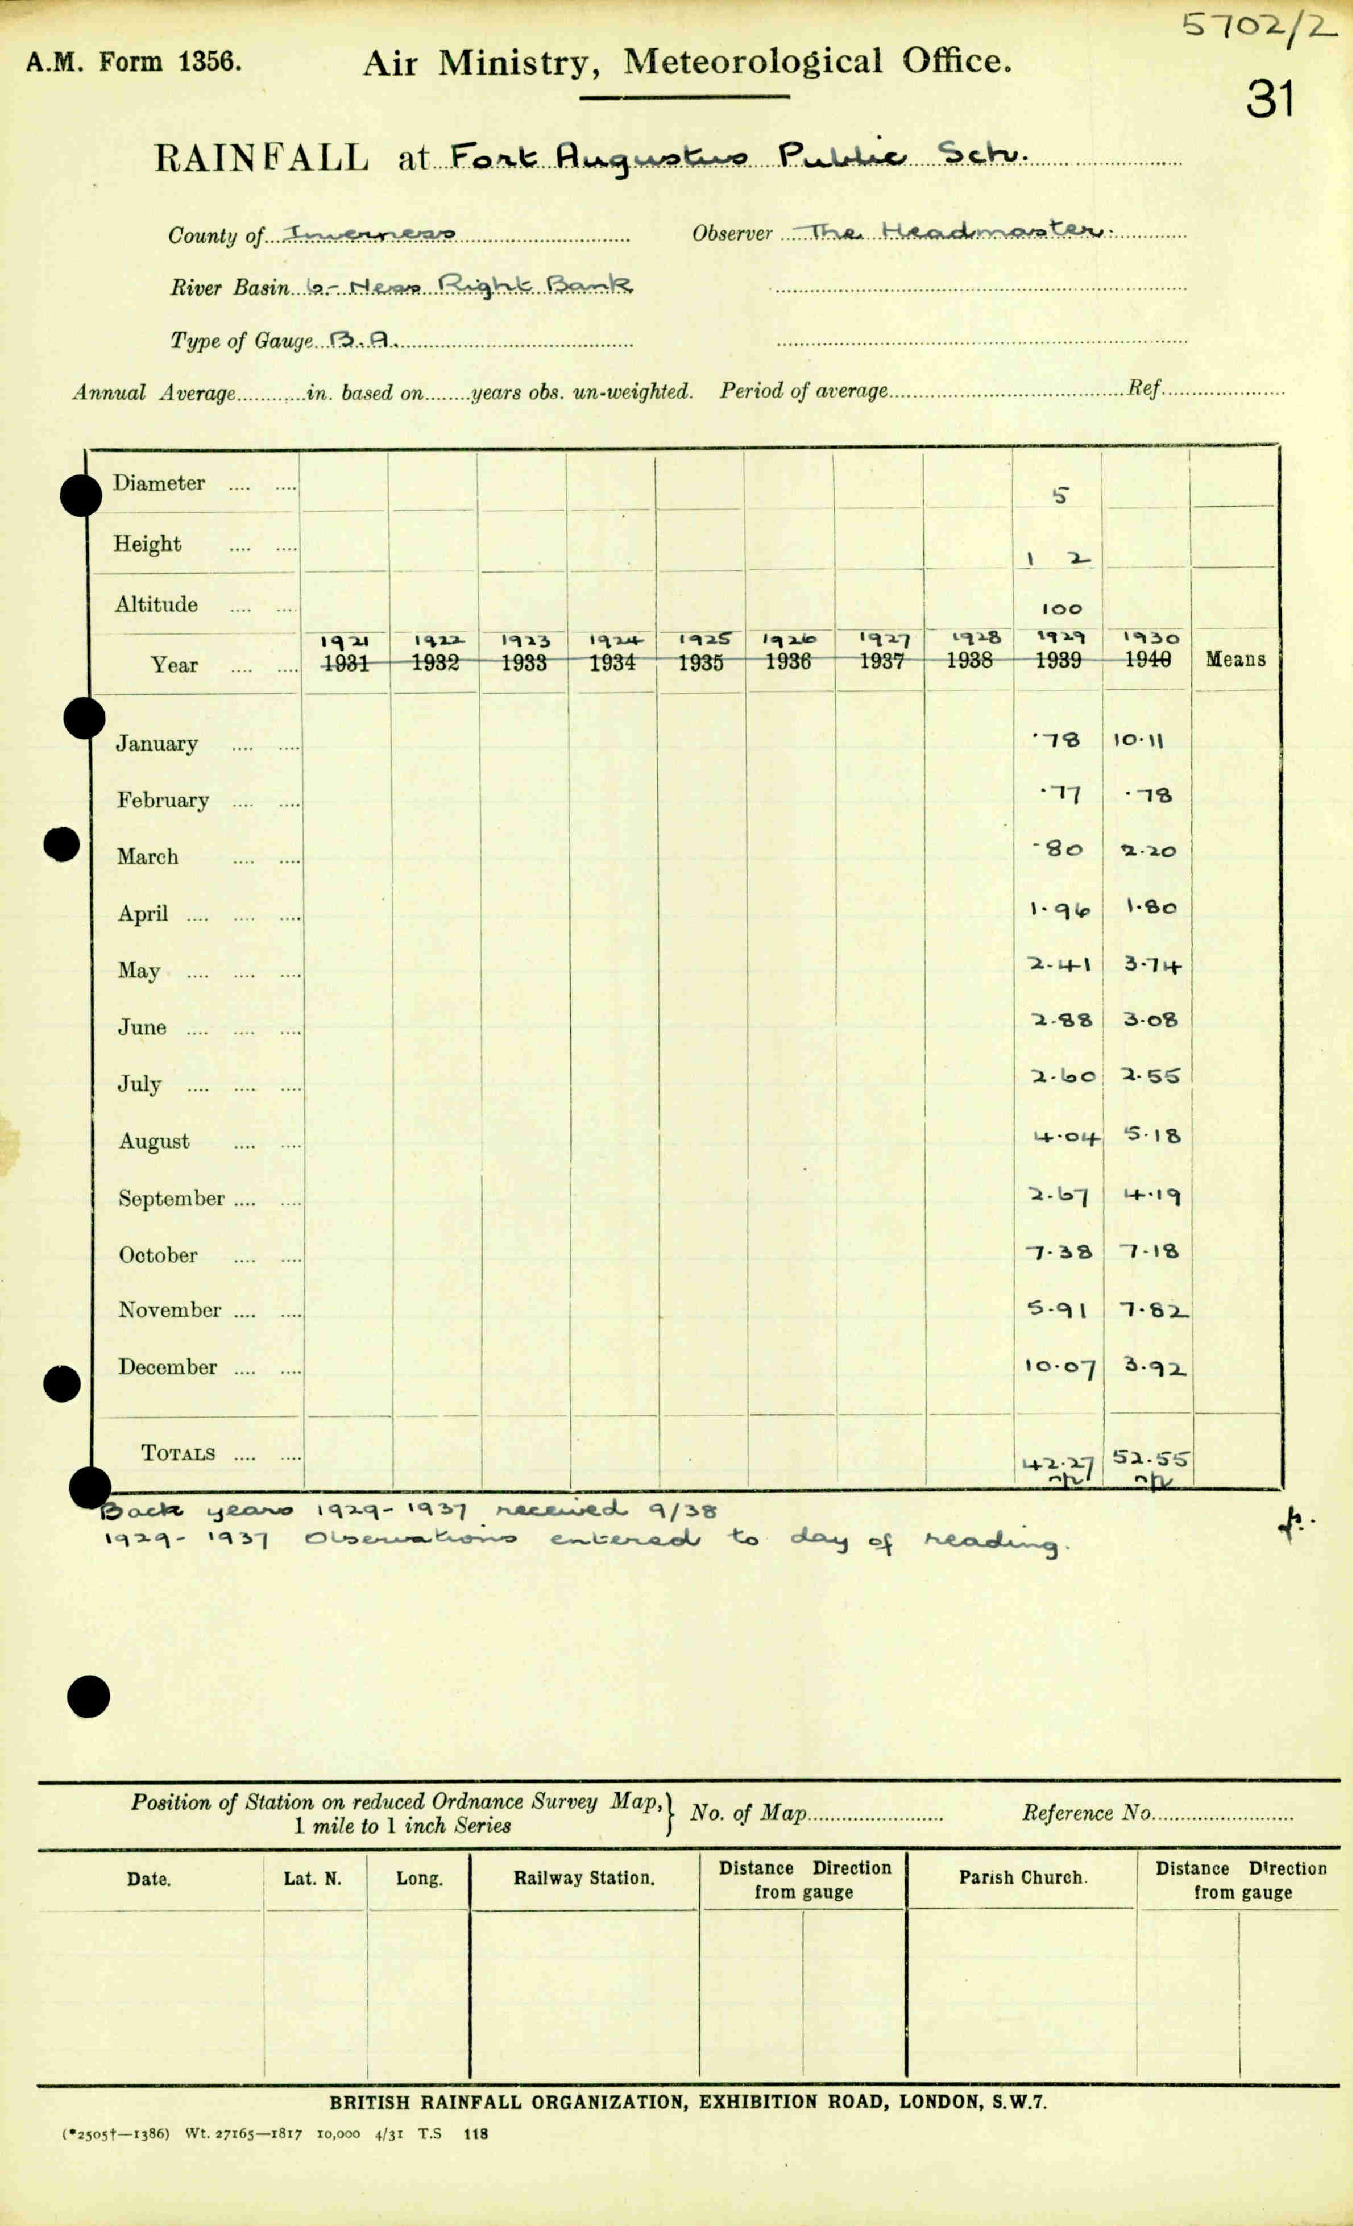 5702/2
A.M. Form 1356. Air Ministry, Meteorological Office.
31
RAINFALL at Fort Augustus Public Sch.
County of Inverness Observer The Headmaster.
River Basin 6- Ness Right Bank
Type of Gauge B.A.
Annual Average in. based on years obs. un-weighted. Period of average Ref.
Diameter 5
Height 1 2
Altitude 100
1921 1922 1923 1924 1925 1926 1927 1928 1929 1930
Year 1931 1932 1933 1934 1935 1936 1937 1938 1939 1940 Means
January ·78 10·11
February ·77 ·78
March ·80 2·20
April 1·96 1·80
May 2·41 3·74
June 2·88 3·08
July 2·60 2·55
August 4·04 5·18
September 2·67 4·19
October 7·38 7·18
November 5·91 7·82
December 10·07 3·92
TOTALS 42·27 52·55
Back years 1929-1937 received 9/38
1929-1937 Observations entered to day of reading.
Position of Station on reduced Ordnance Survey Map, } No. of Map Reference No.
1 mile to 1 inch Series
Date. Lat. N. Long. Railway Station. Distance Direction from gauge Parish Church. Distance Direction from gauge
BRITISH RAINFALL ORGANIZATION, EXHIBITION ROAD, LONDON, S.W.7.
(*2505†—1386) Wt. 27165—1817 10,000 4/31 T.S 118